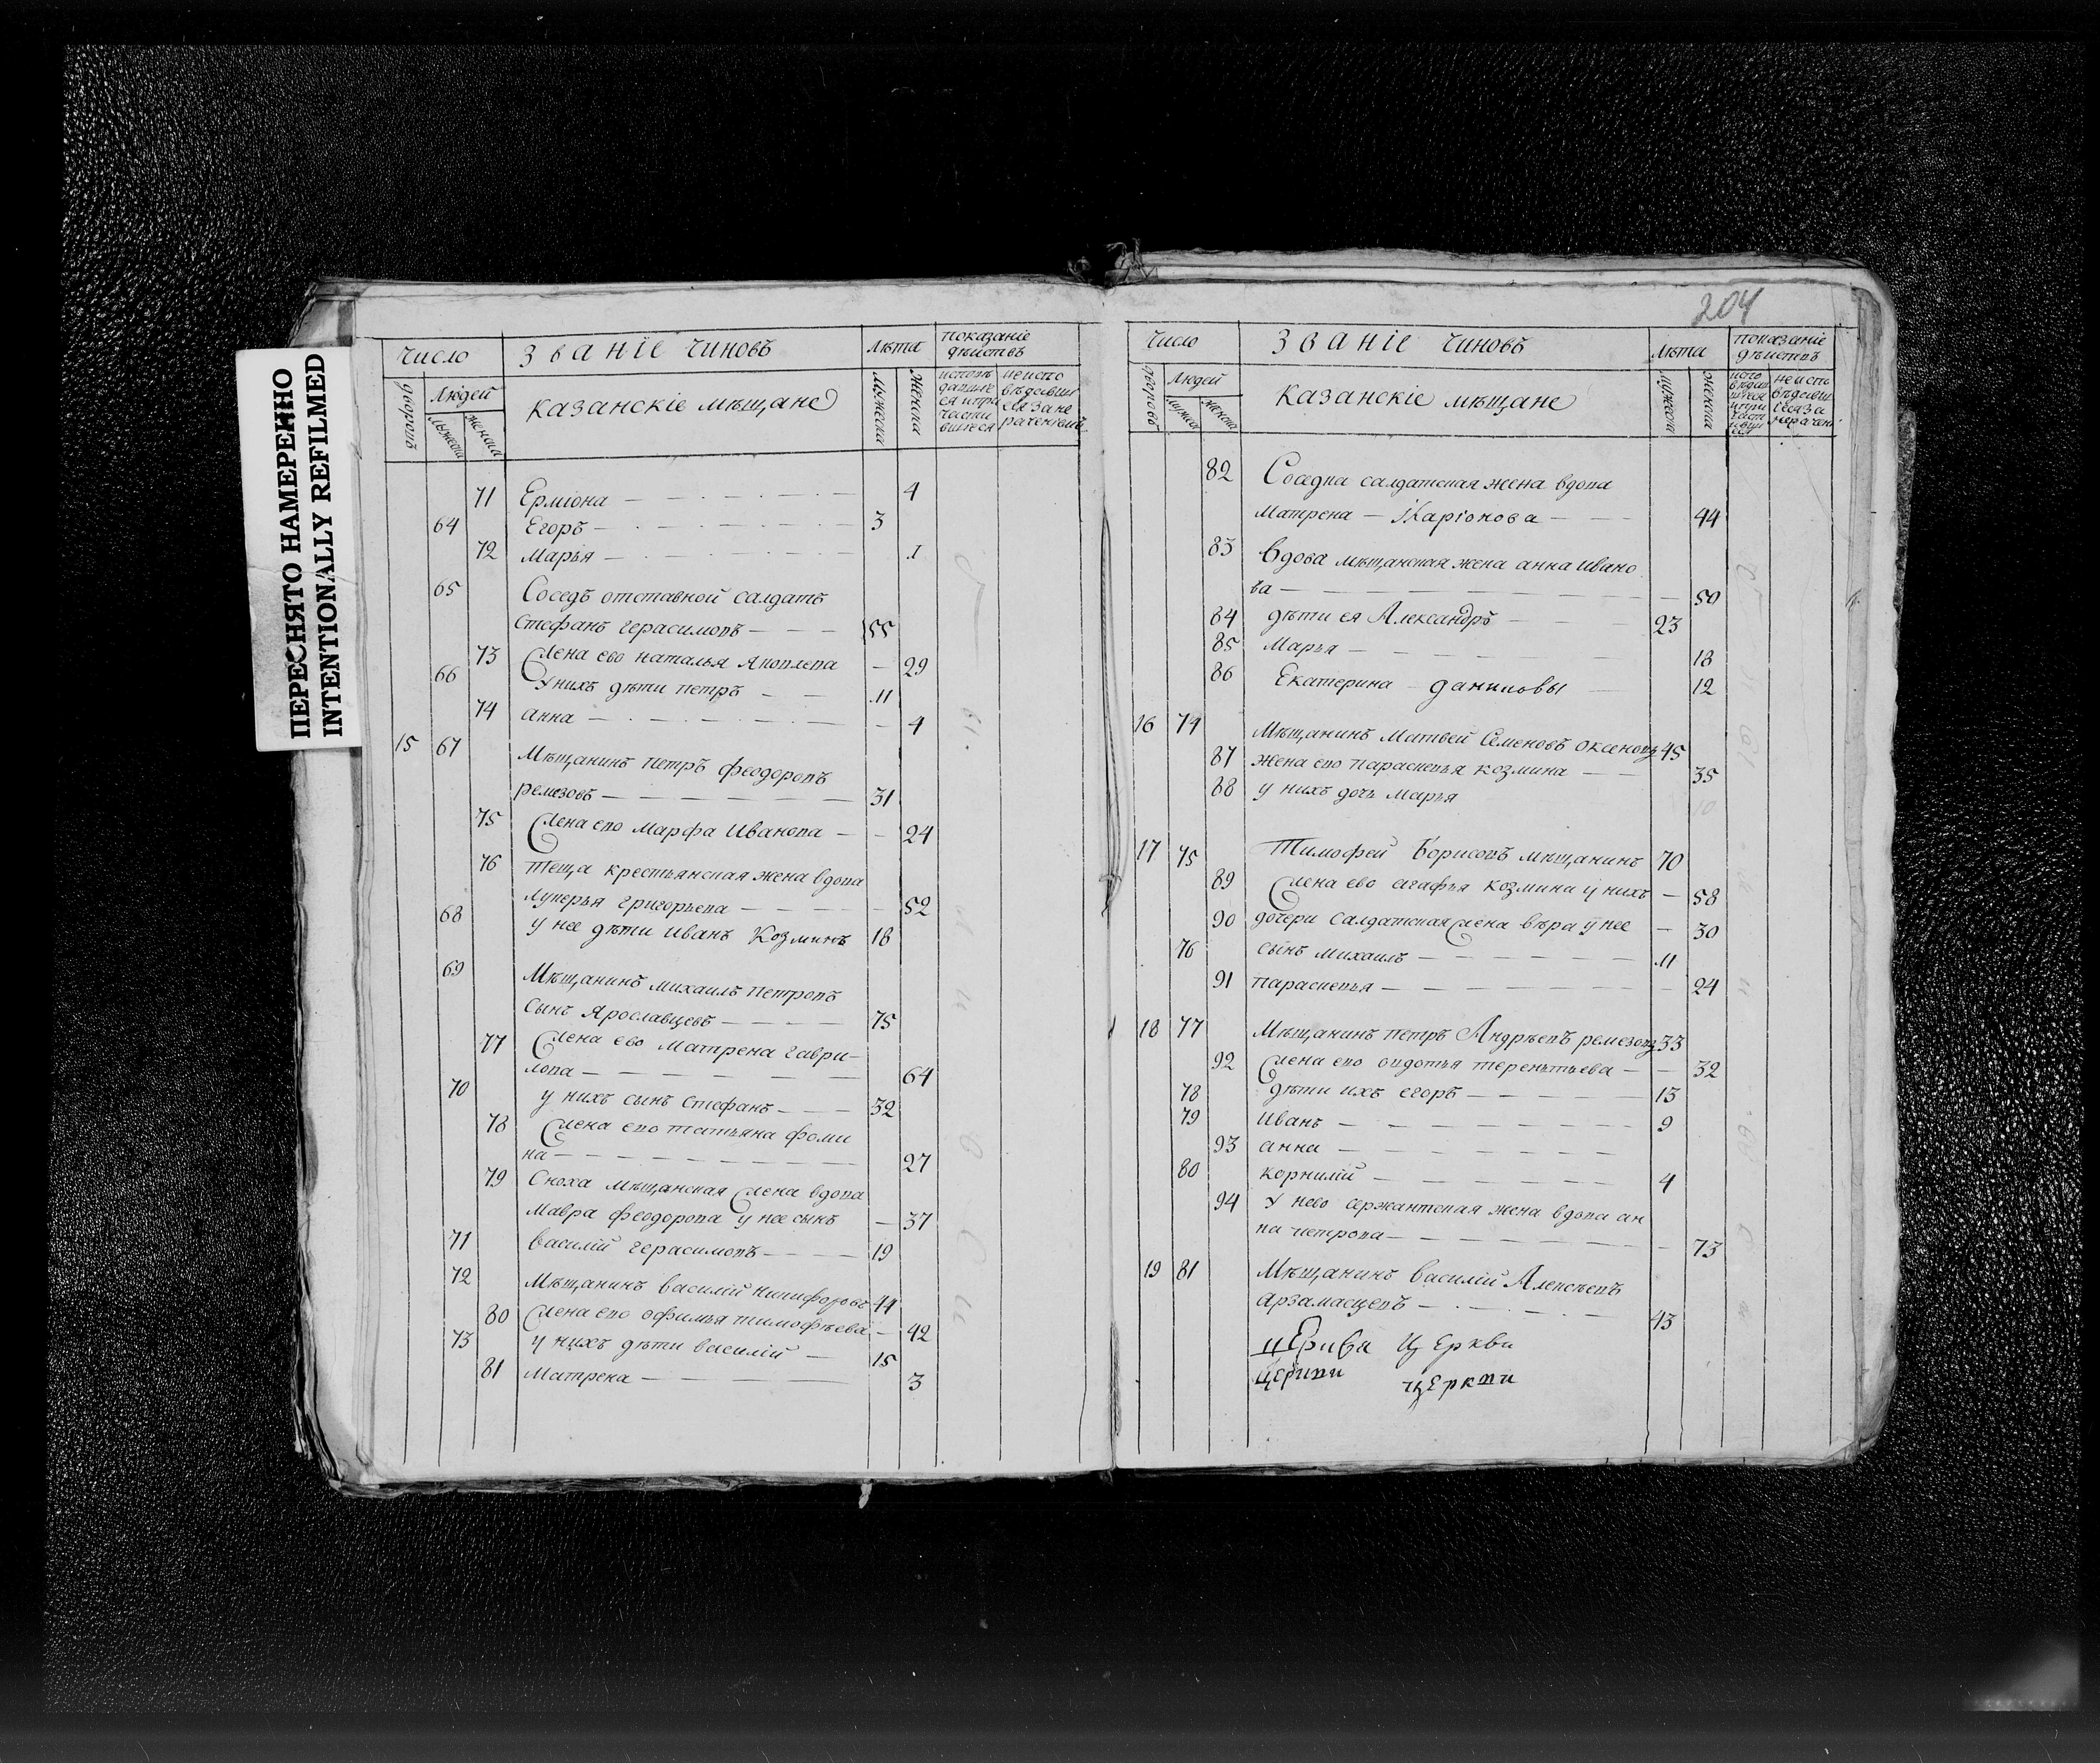 ПЕРЕСНЯТО НАМЕРЕННО
INTENTIONALLY REFILMED
число званіе чиновъ лѣта показаніе дѣиствъ
дворовъ людей казанскіе мѣщане мужеска женска
мужеска женска
71 Ерміона 4
64 Егоръ 3
72 Марья 1
65 Соседъ отставной салдатъ
Стефанъ герасимовъ 55
73 жена ево наталья Яковлева 29
66 у нихъ дѣти петръ 11
74 анна 4
15 67 Мѣщанинъ петръ феодоровъ
ремезовъ 31
75 жена ево Марфа Иванова 24
76 теща крестьянская жена вдова
Лукерья григорьева 52
68 у нее дѣти иванъ Козминъ 18
69 Мѣщанинъ михаилъ петровъ
сынъ Ярославцевъ 75
77 жена ево матрена гаври-
лова 64
70 у нихъ сынъ стефанъ 32
78 жена ево татьяна фоми
на 27
79 Сноха мѣщанская жена вдова
мавра феодорова у нее сынъ 37
71 василій герасимовъ 19
72 Мѣщанинъ василій никифоровъ 44
80 жена ево офимья тимофѣева 42
73 у нихъ дѣти василій 15
81 Матрена 3
204
число званіе чиновъ лѣта показаніе дѣиствъ
дворовъ людей казанскіе мѣщане мужеска женска
мужеска женска
82 Соседка салдатская жена вдова
матрена Iларіонова 44
83 Вдова мѣщанская жена анна ивано
ва 50
84 дѣти ея Александръ 23
85 Марья 18
86 Екатерина даниловы 12
16 74 Мѣщанинъ Матвей Семеновъ Оксеновъ 45
87 жена ево параскевья козмина 35
88 у нихъ дочь марья 10
17 75 Тимофей Борисовъ мѣщанинъ 70
89 жена ево агафья козмина у нихъ 58
90 дочери салдатская жена вѣра у нее 30
76 сынъ михаилъ 11
91 параскевья 24
18 77 Мѣщанинъ петръ Андрѣевъ ремезовъ 33
92 жена ево овдотья терентьева 32
78 дѣти ихъ егоръ 13
79 иванъ 9
93 анна
80 корнилій 4
94 у нево сержантская жена вдова ан
на петрова 73
19 81 Мѣщанинъ василій Алексѣевъ
арзамасцевъ 43
церкви
церкви церкви